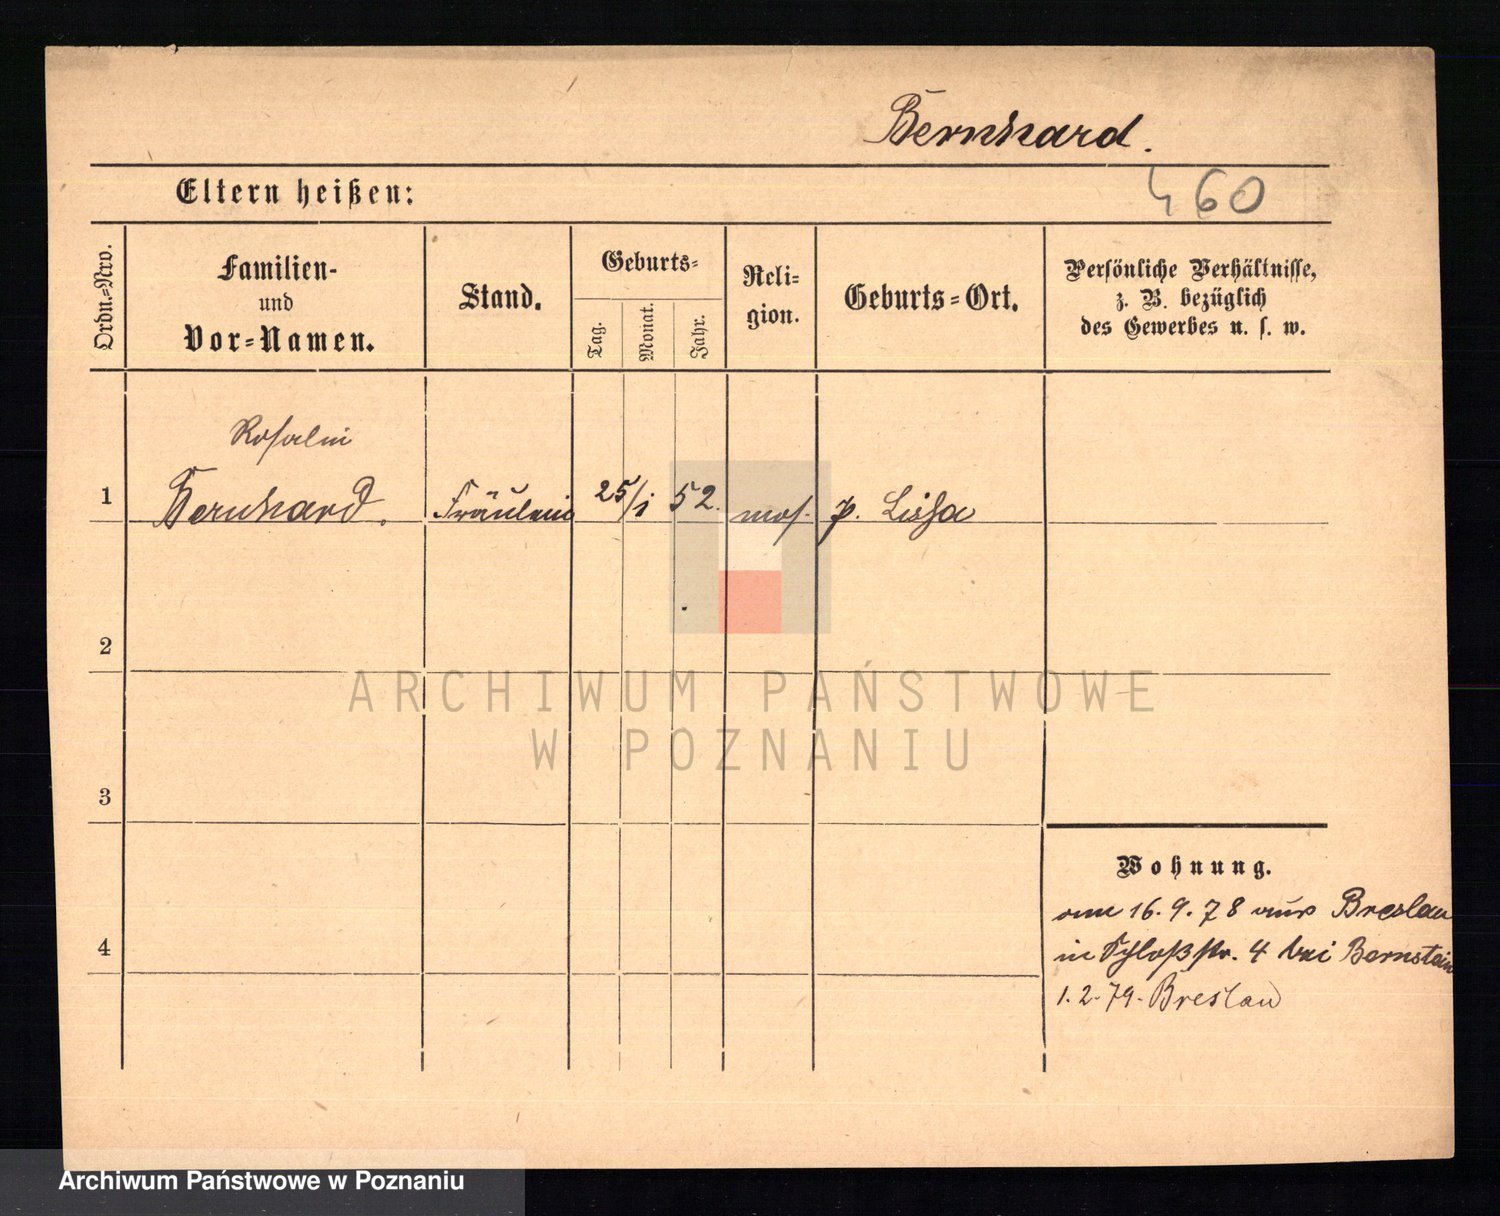 Bernhard.
Eltern heißen:
460
Ordn.-Nro.
Familien-
und
Vor-Namen.
Stand.
Geburts-
Tag.
Monat.
Jahr.
Reli-
gion.
Geburts-Ort.
Persönliche Verhältnisse,
z. B. bezüglich
des Gewerbes u. s. w.
Rosalie
1 Bernhard. Fräulein 25/1 52. mos. p. Lissa
2
ARCHIWUM PAŃSTWOWE
W POZNANIU
3
Wohnung.
am 16.9.78 aus Breslau
4
in Schloßstr. 4 bei Bernstein
1.2.79. Breslau
Archiwum Państwowe w Poznaniu